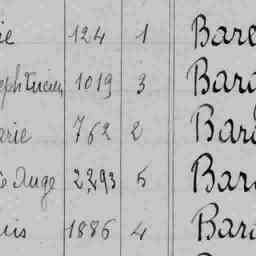 ie 124 1 Bare
eph Lucien 1019 3 Bara
arie 762 2 Bar
e Ange 2293 5 Bar
uis 1886 4 Bara